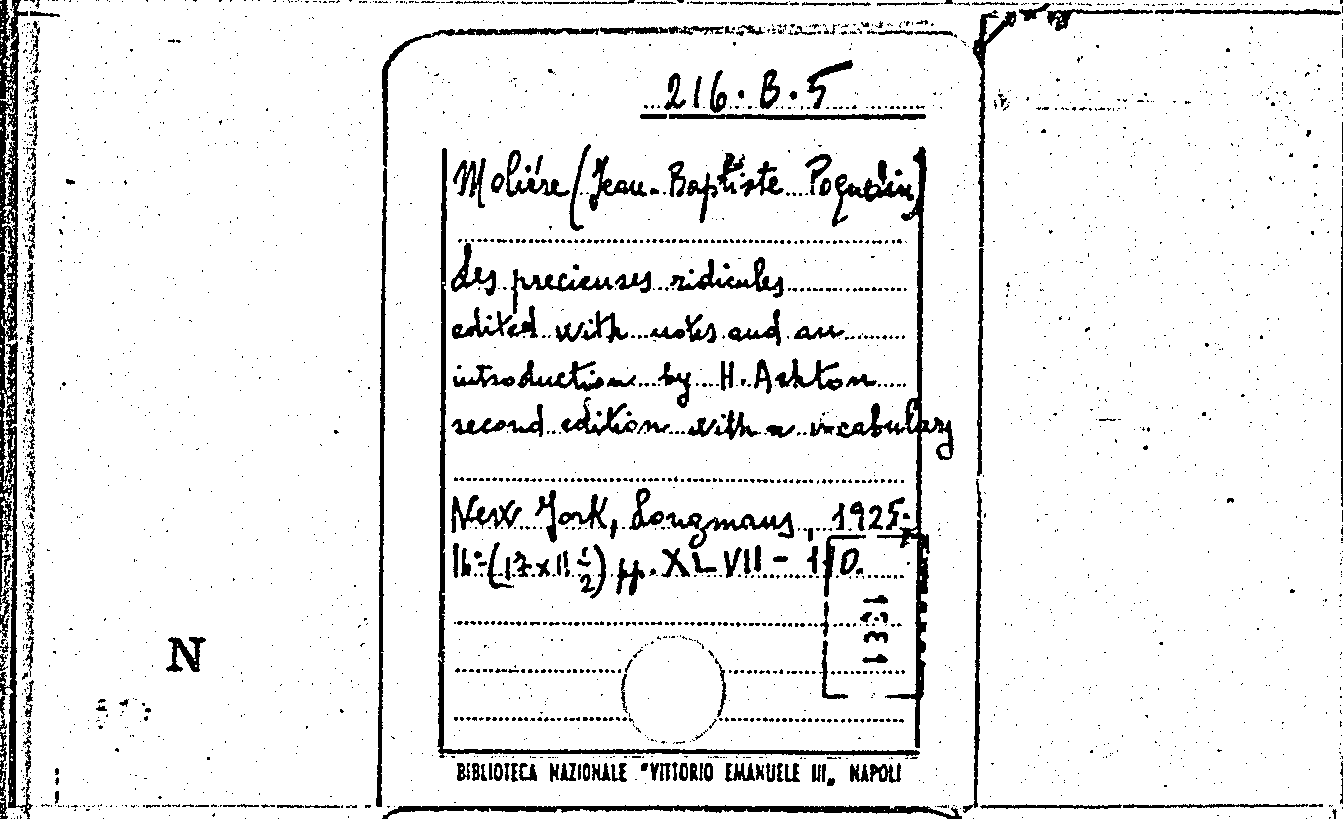 216.B.5
Molière (Jean-Baptiste Poquelin)
Les precieuses ridicules
edited with notes and an
introduction by H. Ashton
second edition with a vocabulary
New York, Longmans, 1925.
16°-(17x11 1/2) pp. XLVII - 110.
N
BIBLIOTECA NAZIONALE "VITTORIO EMANUELE III„ NAPOLI